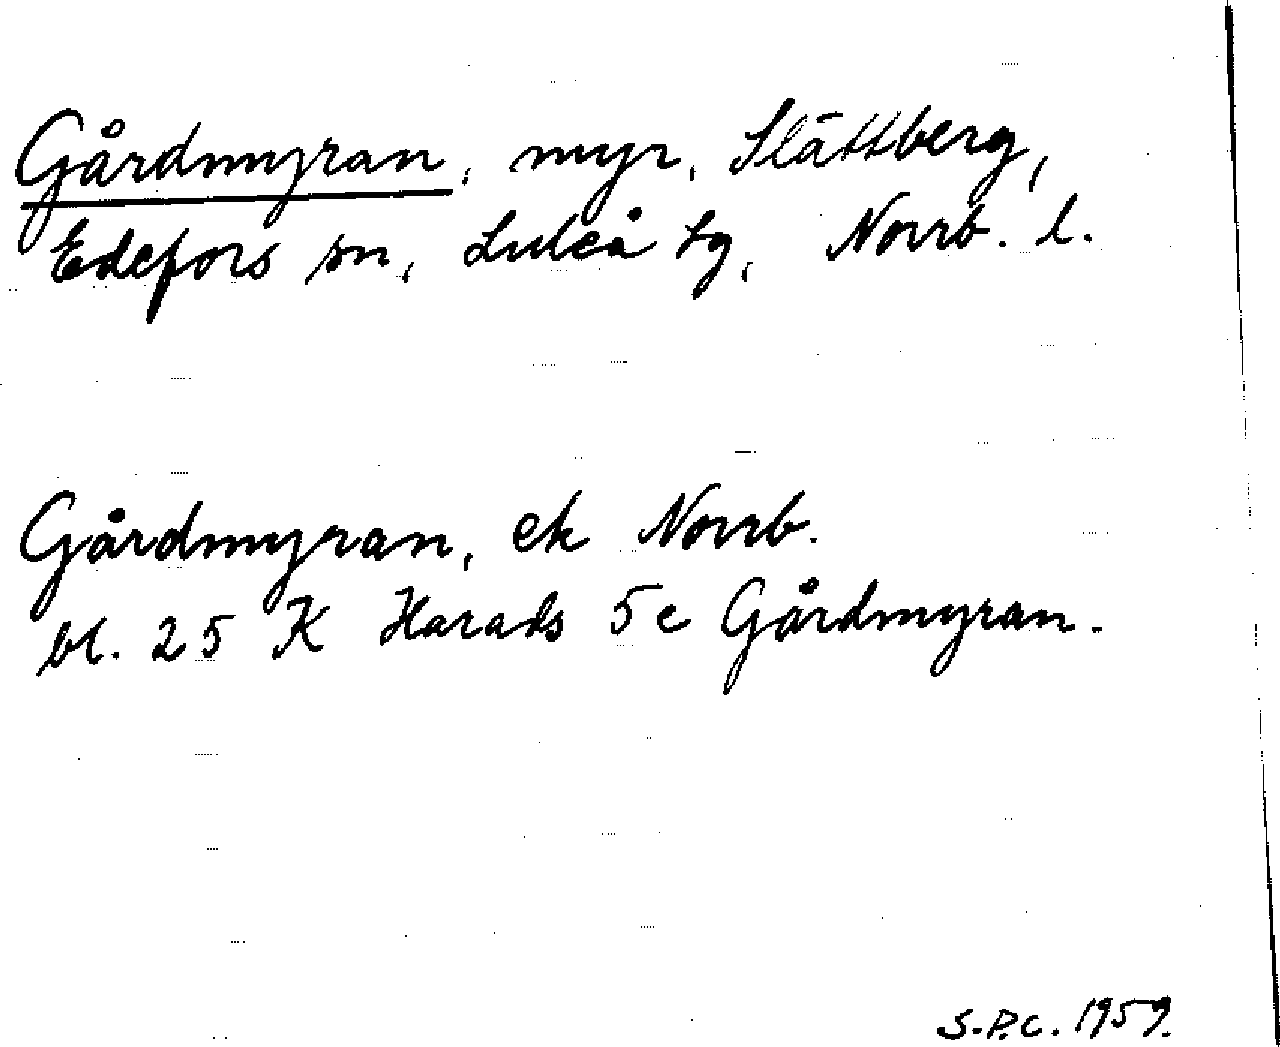 Gårdmyran, myr, Slättberg,
Edefors sn, Luleå tg, Norrb. l.
Gårdmyran, ek Norrb.
bl. 25 K Harads 5c Gårdmyran.
S.P.C. 1959.